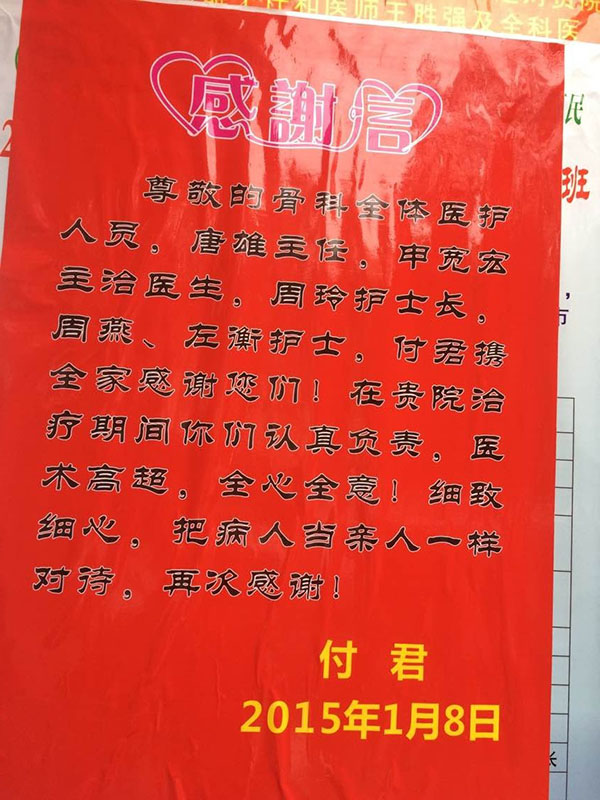 和医师王胜强及全科医
感謝信
尊敬的骨科全体医护
人员，唐雄主任，申宽宏
主治医生，周玲护士长，
周燕、左衡护士，付君携
全家感谢您们！在贵院治
疗期间你们认真负责，医
术高超，全心全意！细致
细心，把病人当亲人一样
对待，再次感谢！
付 君
2015年1月8日
民
班
，
市
长